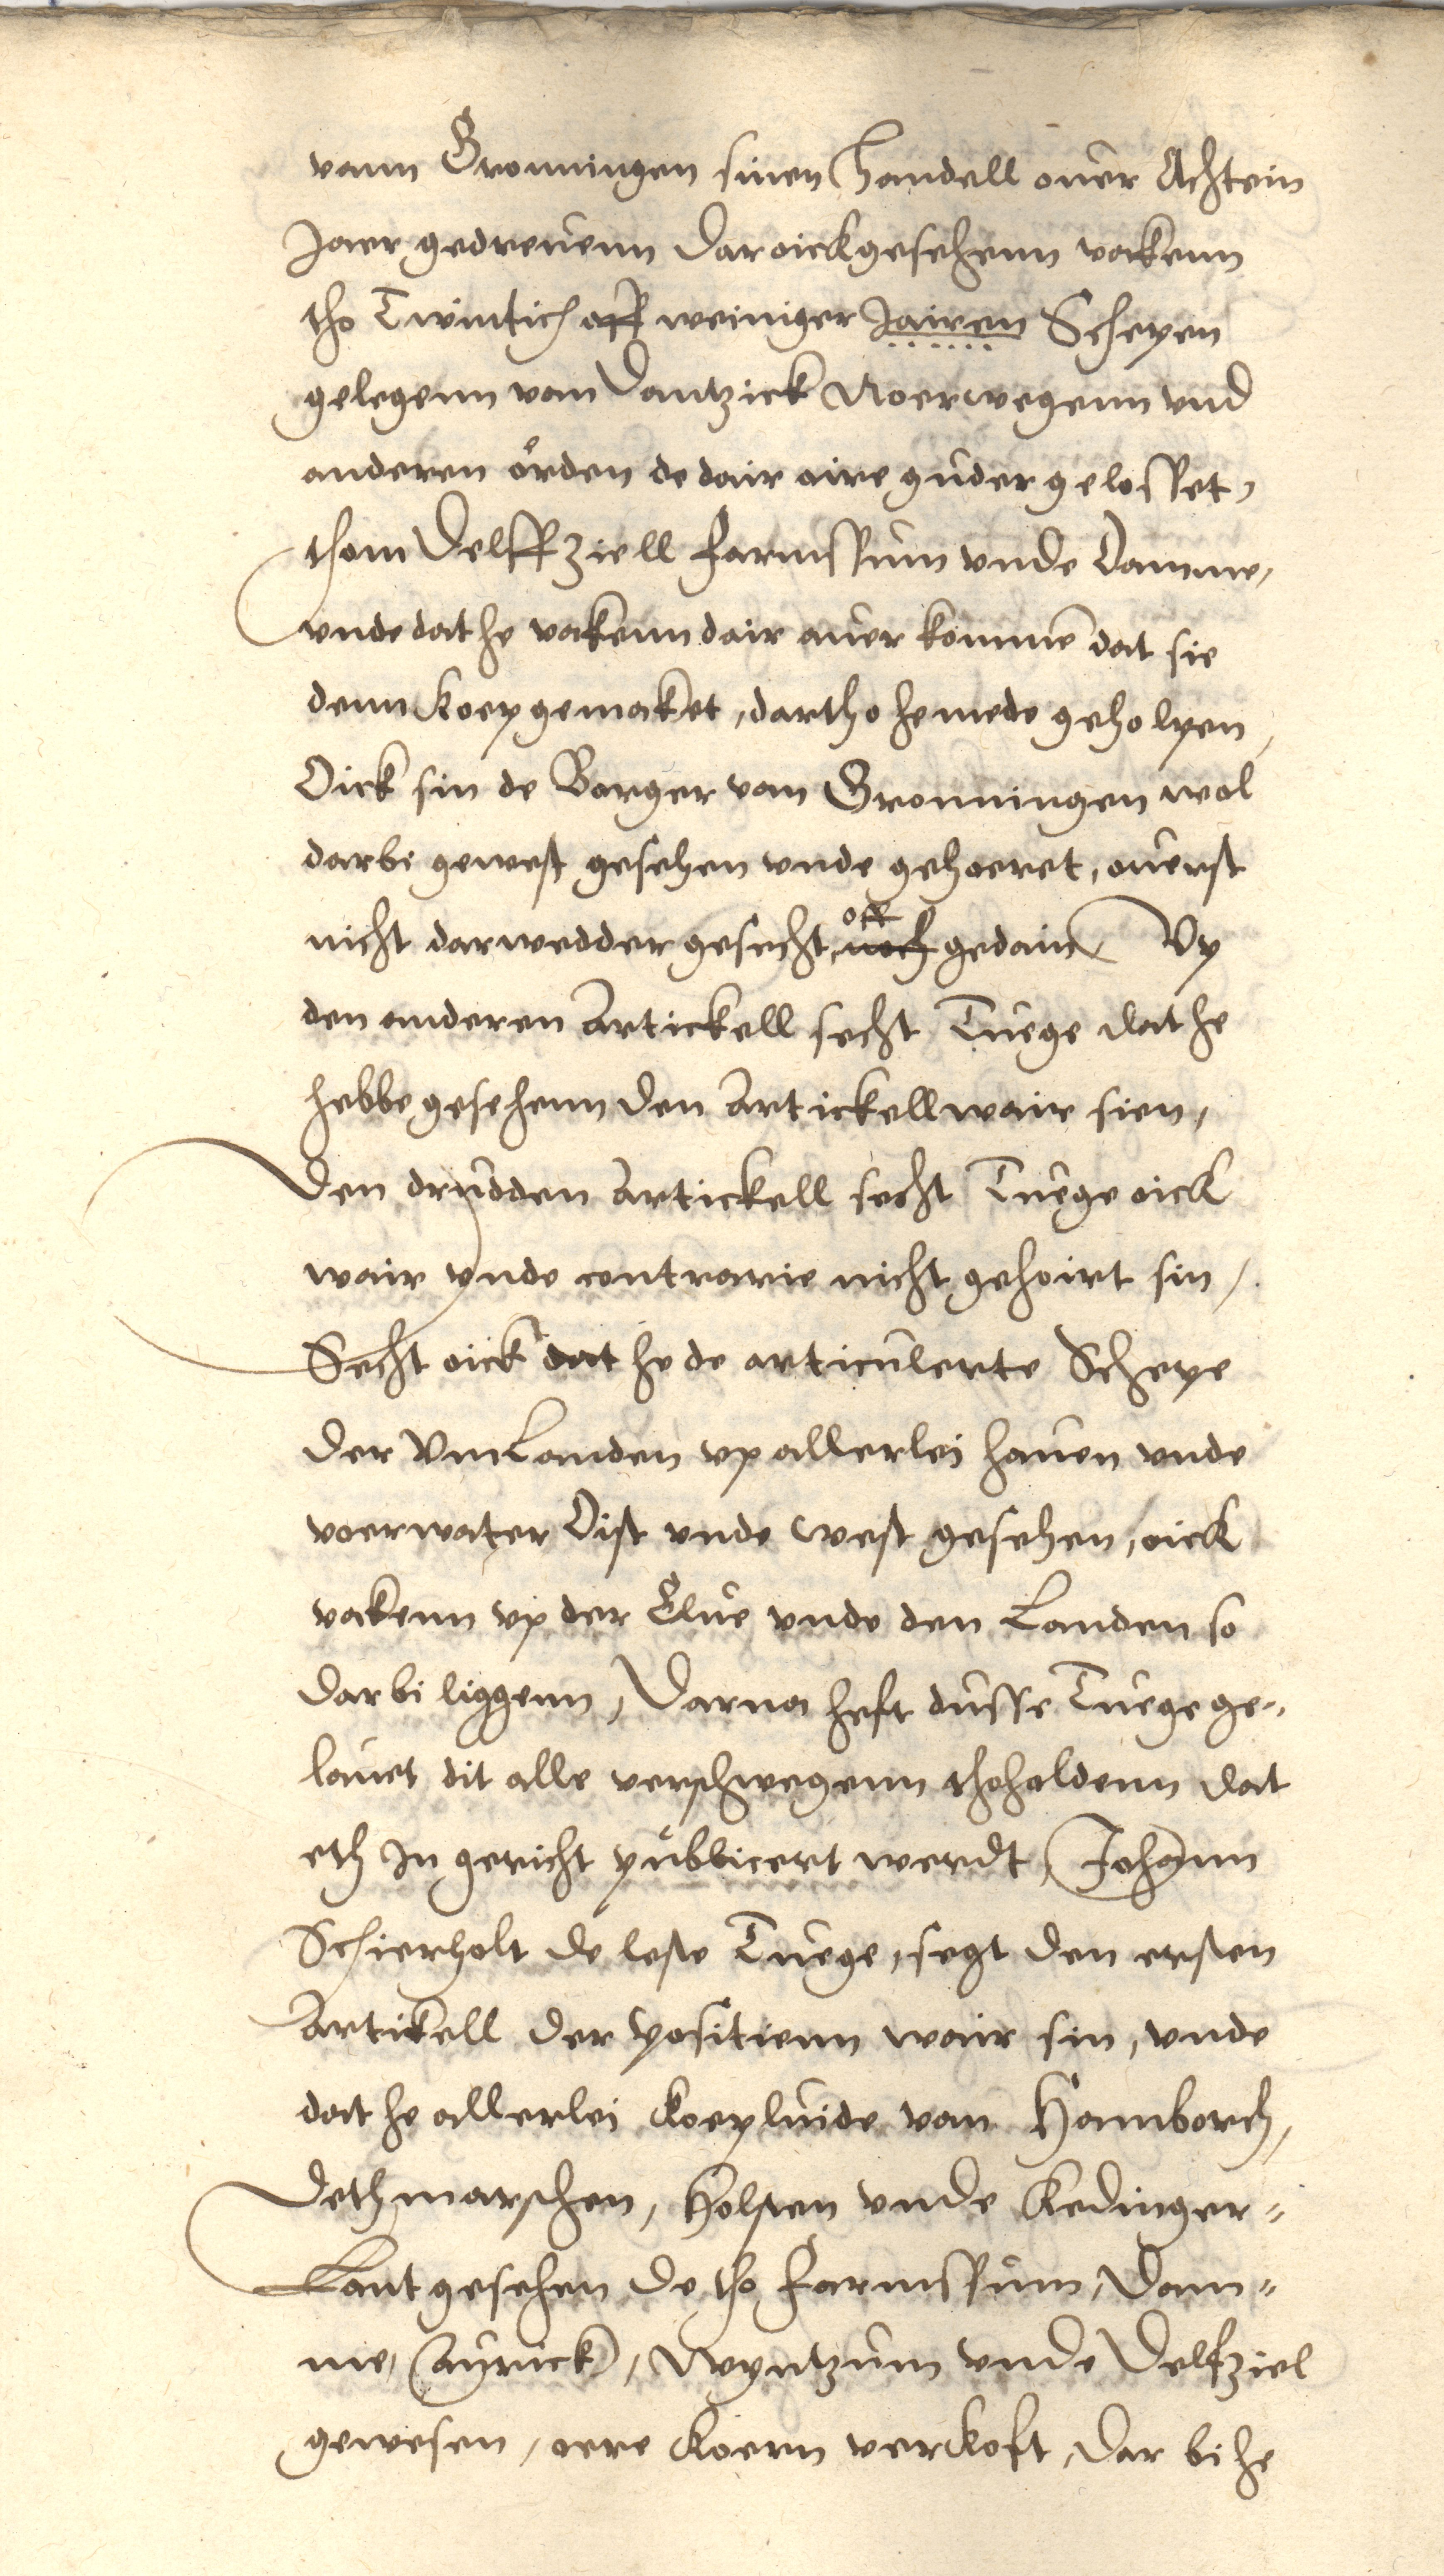 vann Gronningen sinen Handell ouer Achtein
Jaer gedreuenn Dar oick gesehenn vakenn
tho Twintich off weiniger Jairen Schepen
gelegenn van Dantzick Noerwegenn vnd
anderen örden de dair aire guder gelosset,
thom Delffziell Farmssum vnde Damme,
vnde dat he vakenn dair auer kommen dat sie
denn koep gemaket, dartho he mede geholpen,
Oick sin de Borger van Gronningen wol
darbi gewest gesehen vnde gehoeret, ouerst
nicht darwedder gesecht, noch off gedain Vp
den anderen Artickell secht Tuege dat he
hebbe gesehenn den Artickell wair sien,
Den drudden Artickell secht Tuege oick
wair vnde contrarie nicht gehoirt sin,
Secht oick dat he de articulerte Schepe
der VmLanden vp allerlei hauen vnde
voerwater Oist vnde West gesehen, oick
vakenn vp der Elue vnde den Landen so
dar bi liggenn, Darna heft dusse Tuege ge-
lauet dit alle verschwegenn tho holdenn dat
eth Jn gericht publicert werdt, Johann
Schierholt de leste Tuege, segt den ersten
Artikell der positienn wair sin, vnde
dat he allerlei koepluide van Hamborch,
Dethmarschen, Holsten vnde Kedinger-
Lant gesehen de tho Farmssum, Dam-
me, (Auruck), Wyntzum vnde Delfziel
gewesen, oere koern verkoft, dar bi he